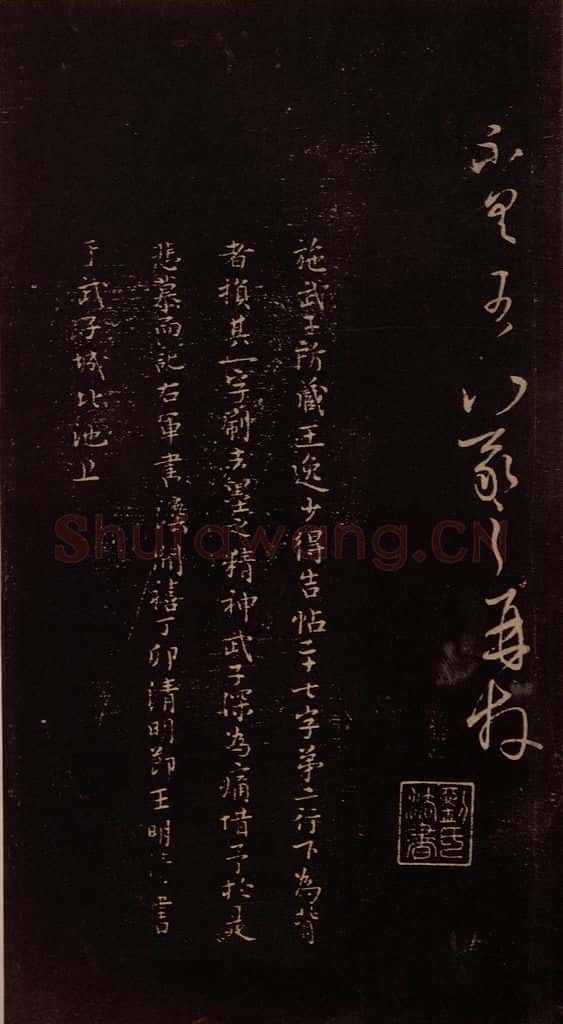 不具 不一一 羲之再拜
劉氏法書
施武子所藏王逸少得告帖二十七字第二行下為背
者損其一字刷去墨之精神武子深為痛惜予於是
悲慕而記右軍書法開禧丁卯清明節王明清書
于武子城北池上
Shufawang.CN